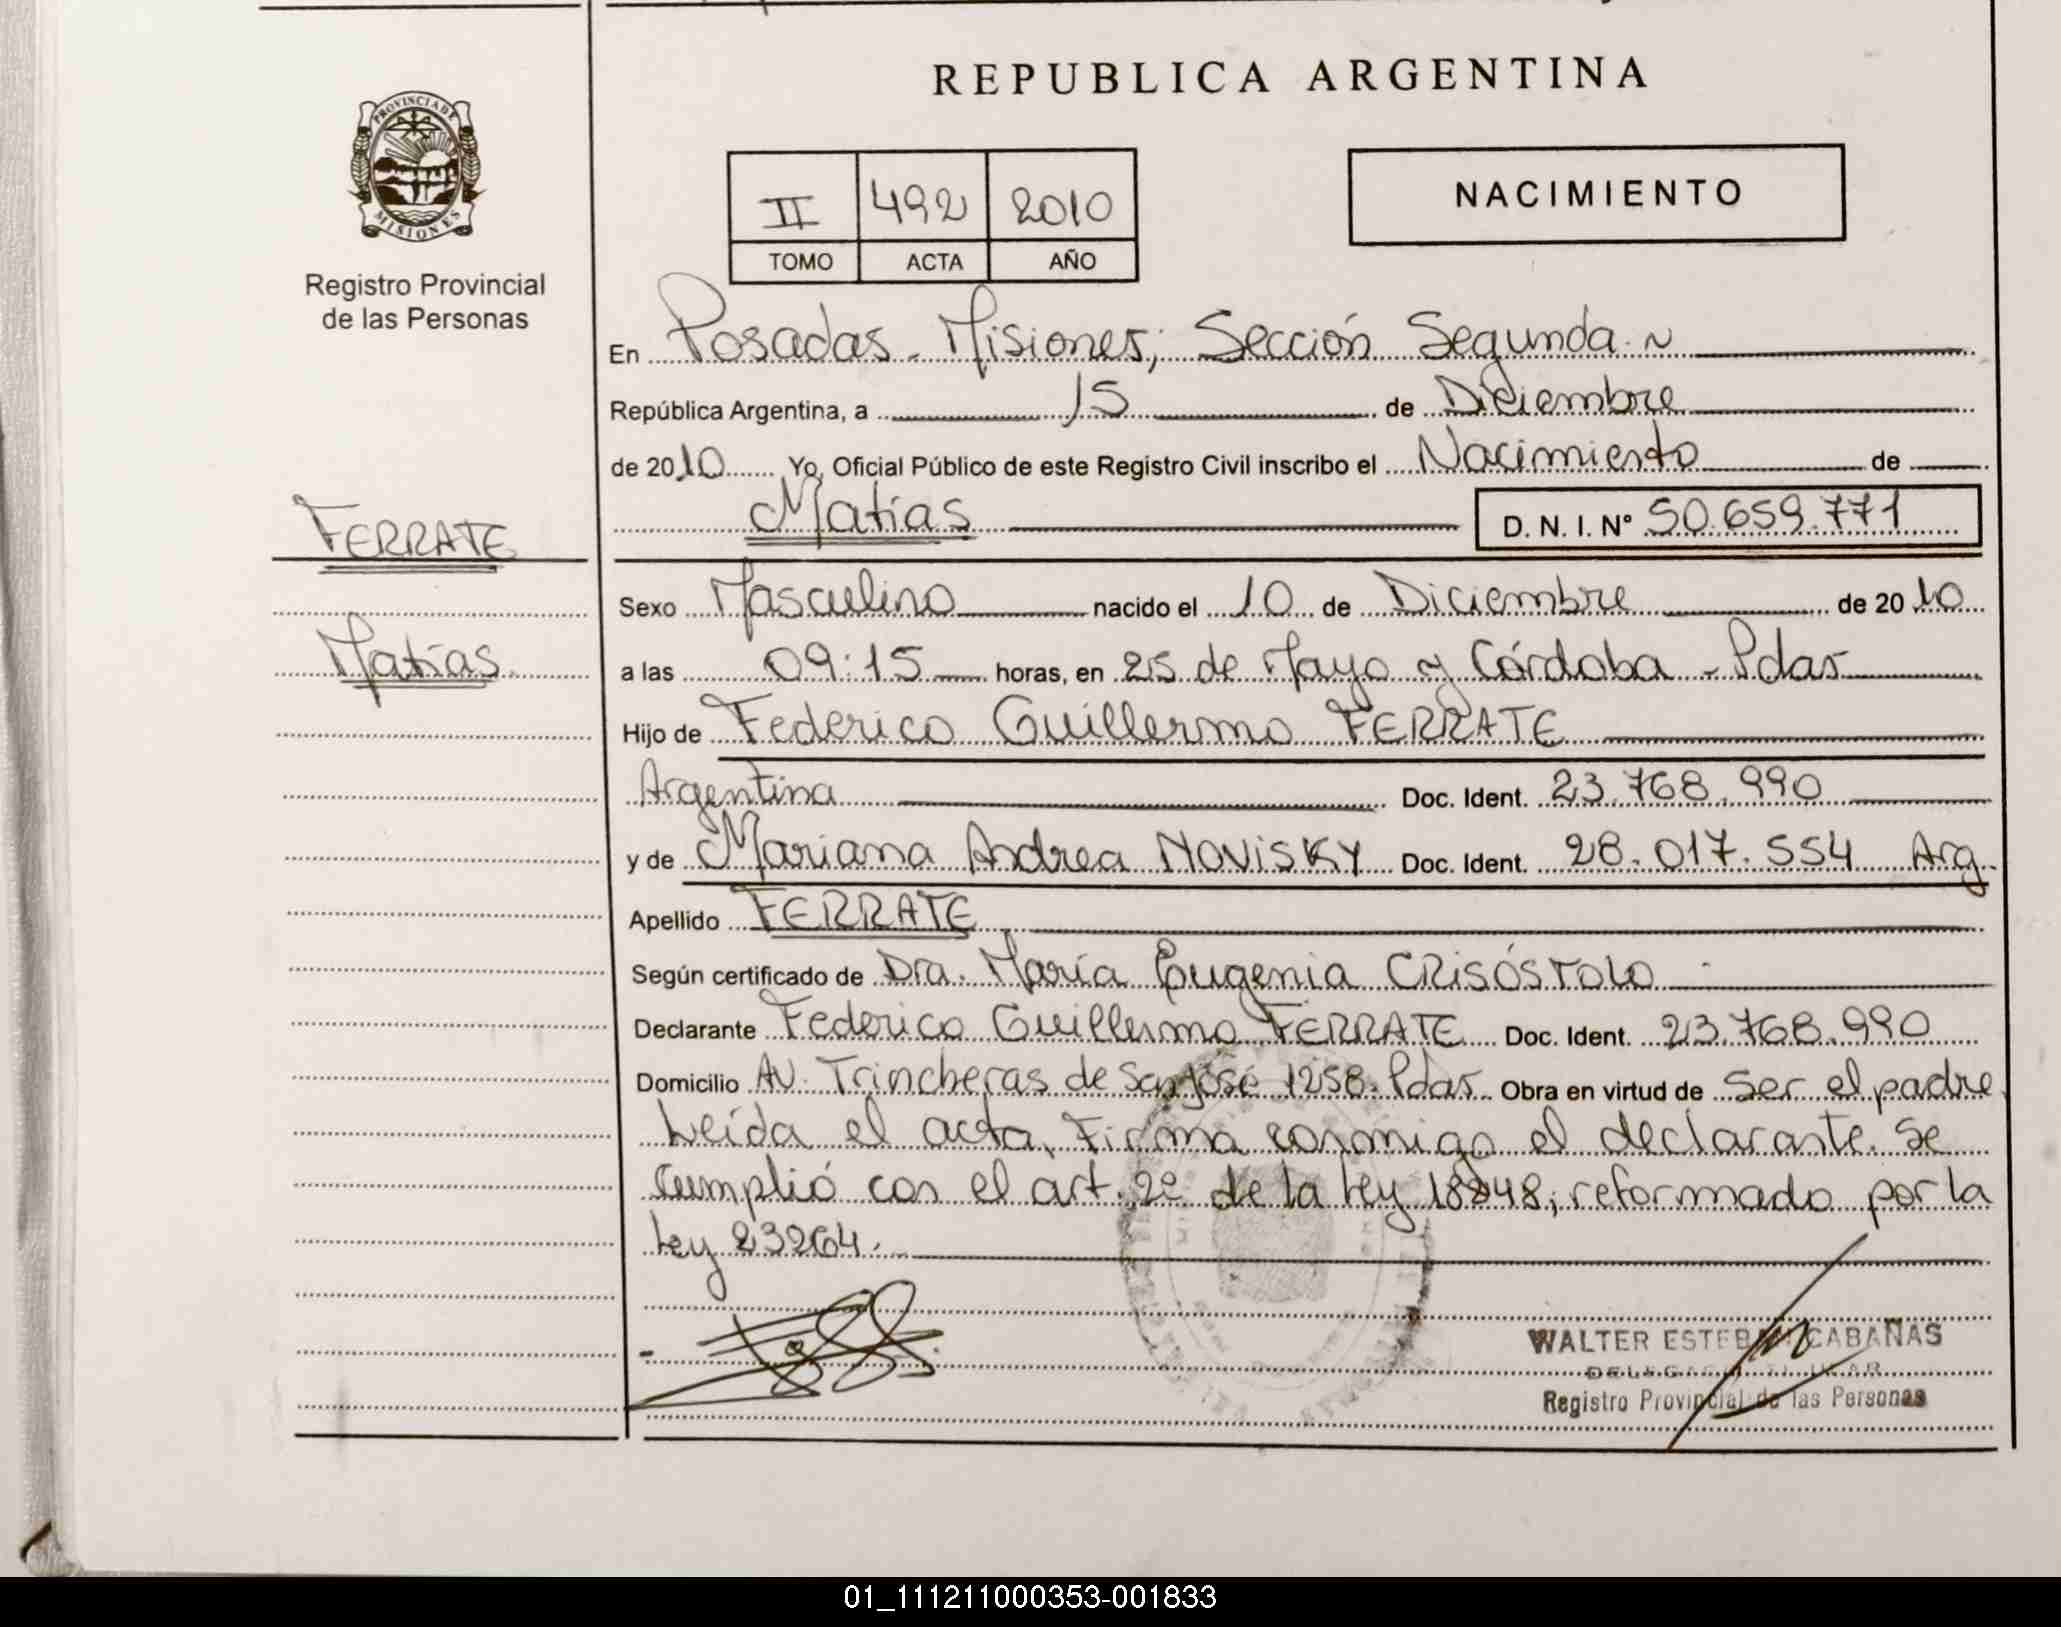 REPUBLICA ARGENTINA
PROVINCIA DE
MISIONES
Registro Provincial
de las Personas
II 492 2010
TOMO ACTA AÑO
NACIMIENTO
En Posadas - Misiones; Sección Segunda
República Argentina, a 15 de Diciembre
de 2010 Yo, Oficial Público de este Registro Civil inscribo el Nacimiento de
Matías D. N. I. Nº 50.659.771
FERRATE
Matías
Sexo Masculino nacido el 10 de Diciembre de 2010
a las 09:15 horas, en 25 de Mayo y Córdoba - Pdas
Hijo de Federico Guillermo FERRATE
Argentina Doc. Ident. 23.768.990
y de Mariana Andrea NOVISKY Doc. Ident. 28.017.554 Arg.
Apellido FERRATE
Según certificado de Dra. María Eugenia CRISÓSTOLO
Declarante Federico Guillermo FERRATE Doc. Ident. 23.768.990
Domicilio AV. Trincheras de San José 1258. Pdas Obra en virtud de Ser el padre
Leída el acta, Firma conmigo el declarante. Se
Cumplió con el art. 2º de la Ley 18248, reformado por la
Ley 23264.
WALTER ESTEBAN CABAÑAS
Registro Provincial de las Personas
01_111211000353-001833